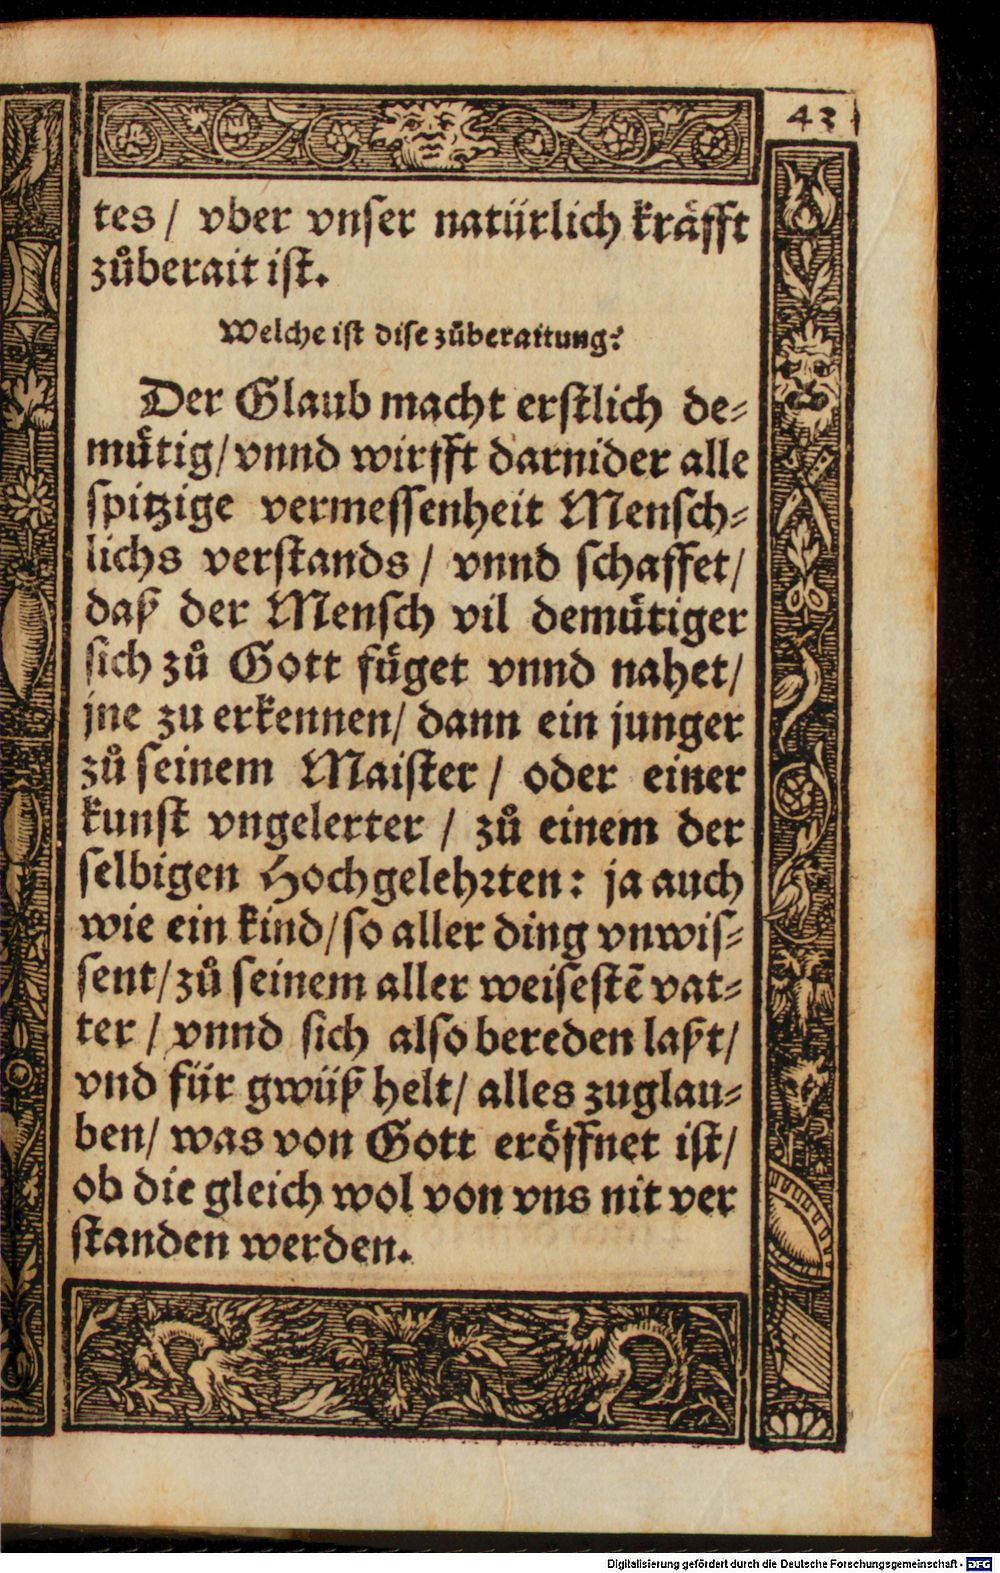 43
tes / vber vnser natürlich kräfft
zůberait ist.
Welche ist dise zůberaitung?
Der Glaub macht erstlich de⸗
mütig/ vnnd wirfft darnider alle
spitzige vermessenheit Mensch⸗
lichs verstands / vnnd schaffet/
daß der Mensch vil demütiger
sich zů Gott füget vnnd nahet/
jne zu erkennen/ dann ein junger
zů seinem Maister / oder einer
kunst vngelerter / zů einem der
selbigen Hochgelehrten: ja auch
wie ein kind/ so aller ding vnwis⸗
sent/ zů seinem aller weisestẽ vat⸗
ter / vnnd sich also bereden laßt/
vnd für gwüß helt/ alles zuglau⸗
ben/ was von Gott eröffnet ist/
ob die gleich wol von vns nit ver
standen werden.
Digitalisierung gefördert durch die Deutsche Forschungsgemeinschaft - DFG